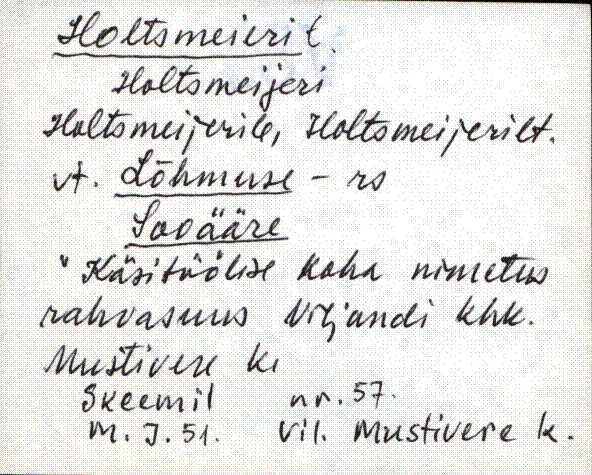 Holtsmeieri t.
Holtsmeijeri
Holtsmeijerile, Holtsmeijerilt.
vt. Lõhmuse – rs
Sooääre
" Käsitöölise koha nimetus
rahvasuus Viljandi khk.
Mustivere k.
Skeemil nr. 57.
M. J. 51. Vil. Mustivere k.